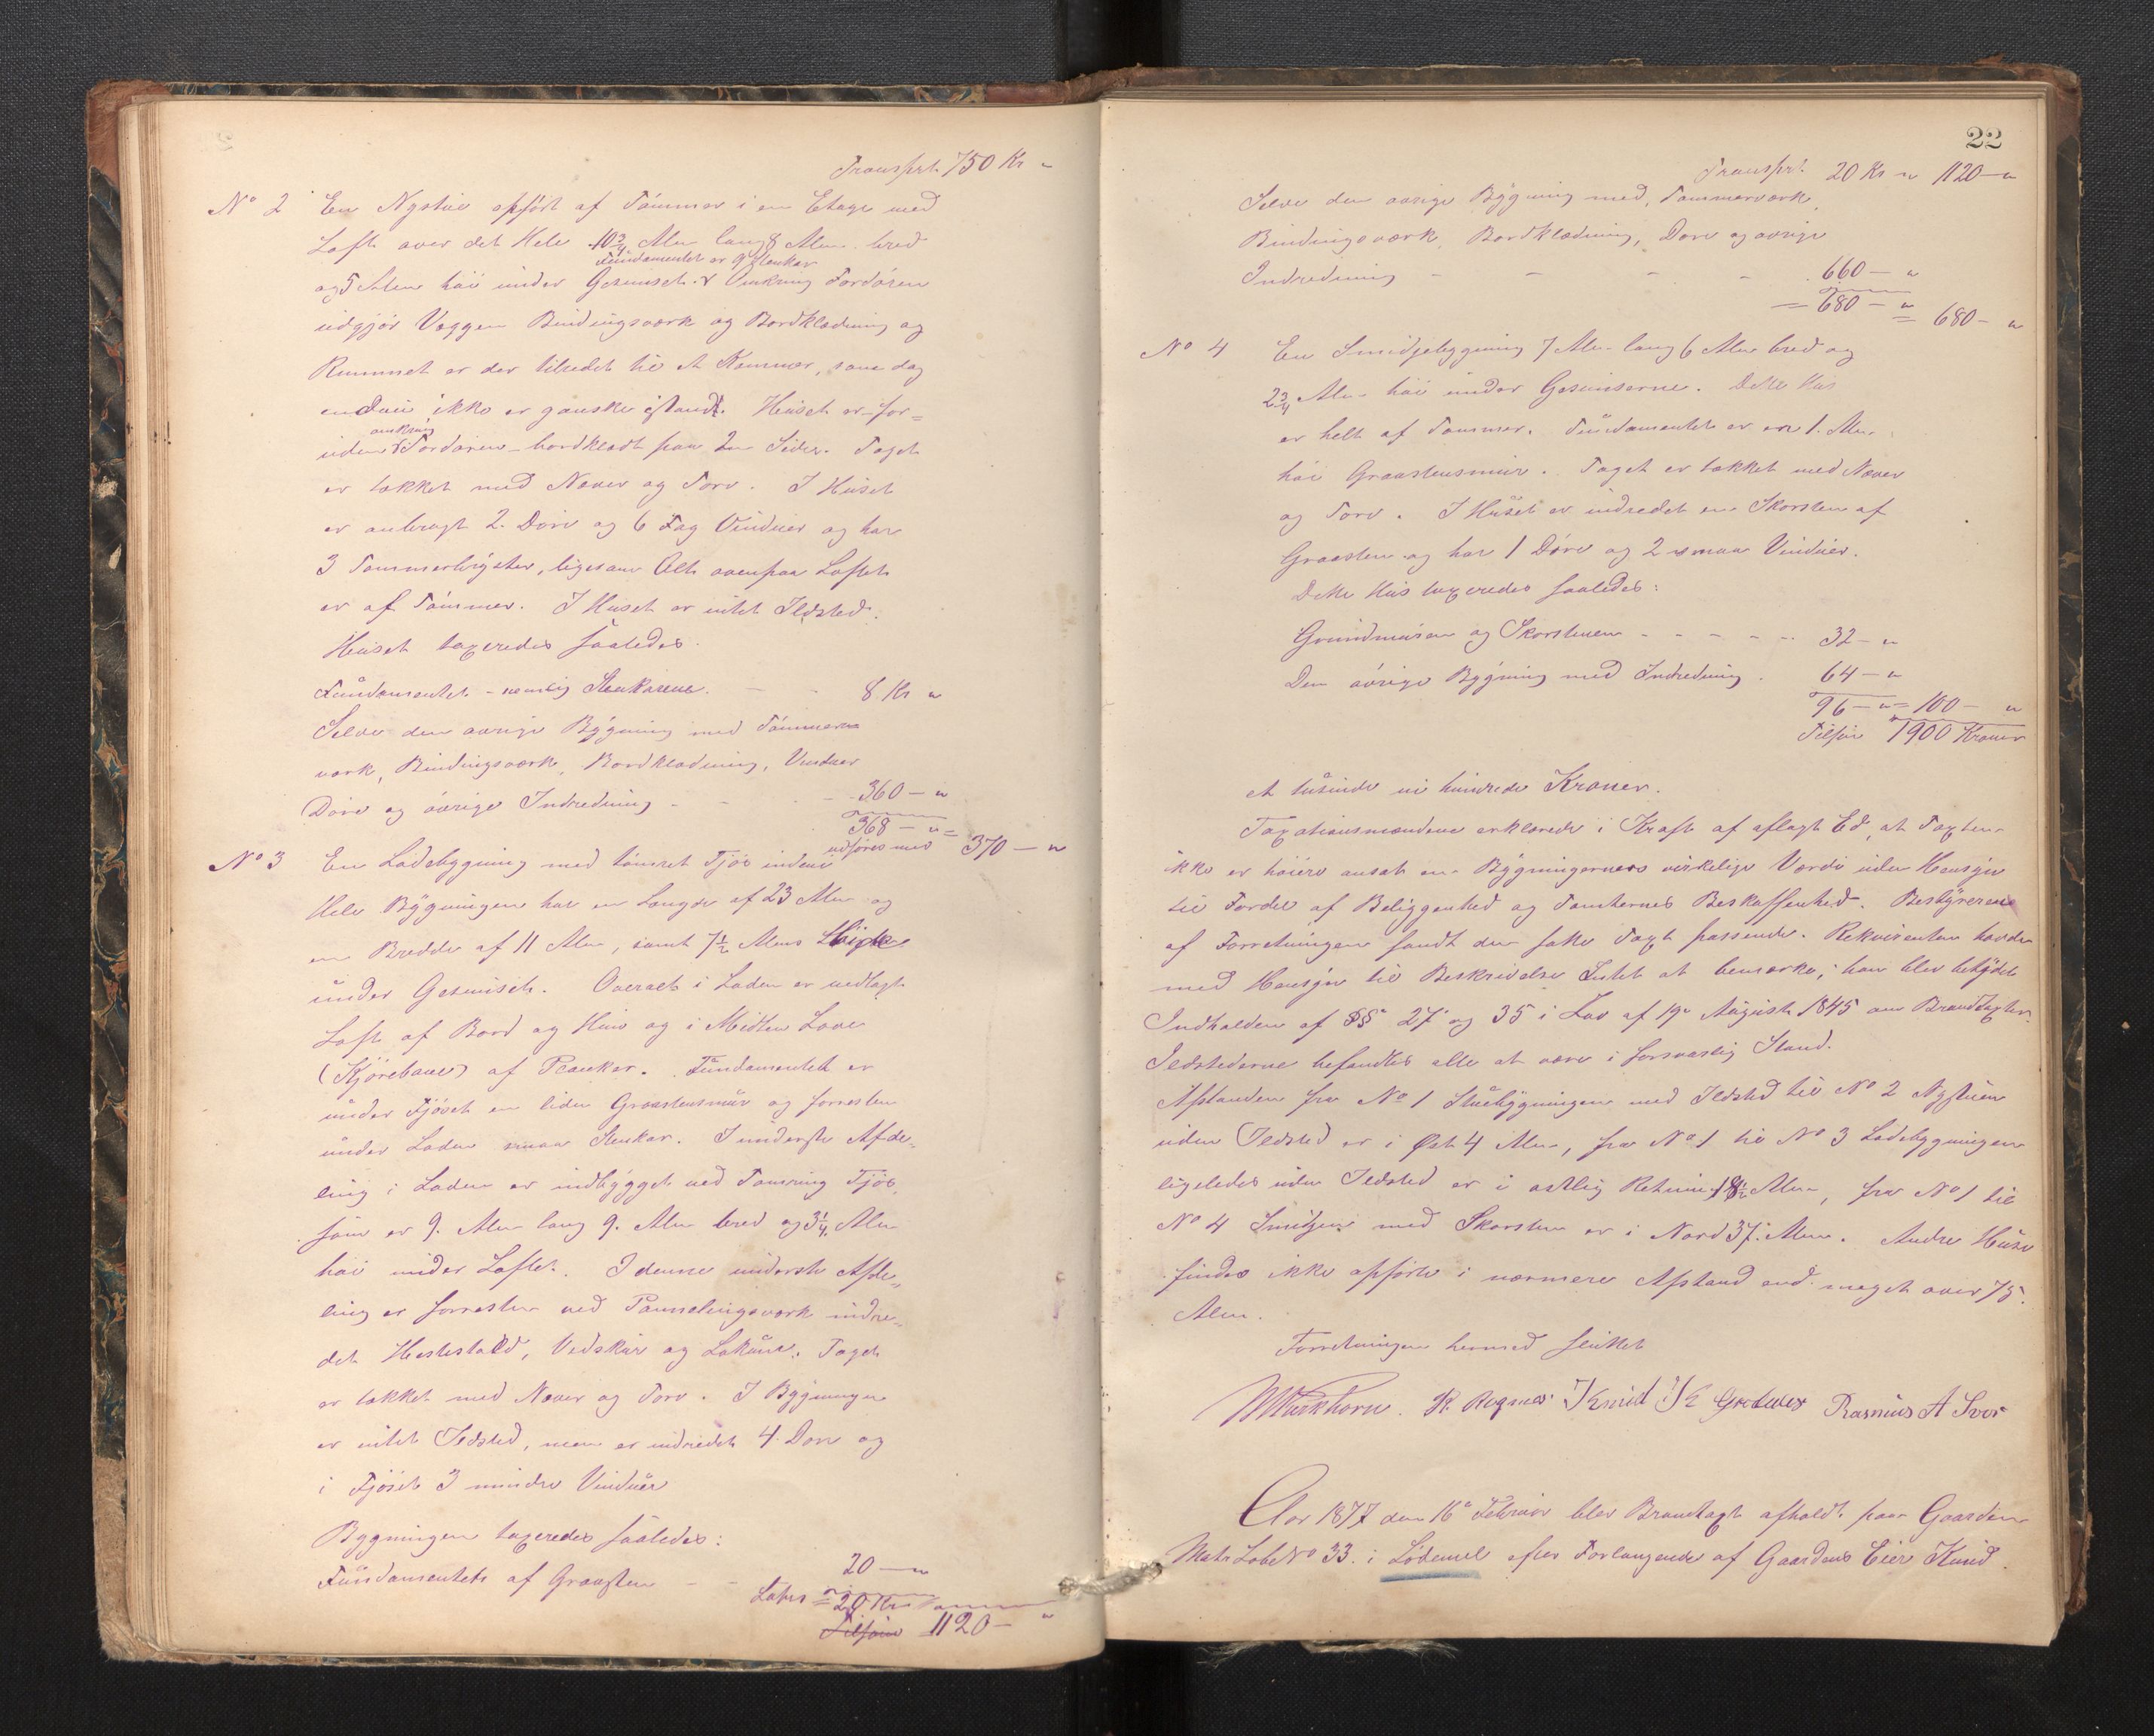 Transprt. 750 Kr "
No 2 En Nystue opført af Tømmer i en Etage med
Loft over det Hele 10 3/4 Alen lang 8 Alen bred
Fundamentet er 9 Stenkar
og 5 Alen høi under Gesimset. Omkring Fordøren
udgjør Væggen Bindingsværk og Bordklædning og
Rummet er der tilredet til et Kammer, som dog
endnu ikke er ganske istand. Huset er for=
omkring
uden Fordøren bordklædt paa 2 Sider. Taget
er tækket med Næver og Torv. I Huset
er anbragt 2 Døre og 6 Fag Vinduer og har
3 Tømmerbryster, ligesom Alt ovenpaa Loftet
er af Tømmer. I Huset er intet Ildsted.
Huset taxeredes saaledes.
Fundamentet - nemlig Stenkarene. - - 8 Kr "
Selve den øvrige Bygning med Tømmer
værk, Bindingsværk, Bordklædning, Vinduer
Døre og øvrige Indredning - - - 360 - "
368 - " =
udføres med 370 - "
No 3 En Ladebygning med tømret Fjøs indeni
Hele Bygningen har en Længde af 23 Alen og
en Bredde af 11 Alen, samt 7 1/2 Alens Høide
under Gesimset. Overalt i Laden er nedlagt
Loft af Bord og Hun og i Midten Love
(Kjørebane) af Planker. Fundamentet er
under Fjøset en liden Graastensmur og forresten
under Laden smaa Stenkar. I underste Afde=
ling i Laden er indbygget ved Tømring Fjøs,
som er 9. Alen lang 9. Alen bred og 3 1/4 Alen
høi under Loftet. I denne underste Afde=
ling er forresten ved Pannelingsværk indre=
det Hestestald, Vedskur og Lokum. Taget
er tækket med Næver og Torv. I Bygningen
er intet Ildsted, men er indredet 4 Døre og
i Fjøset 3 mindre Vinduer
Bygningen taxeredes saaledes:
Fundamentet af Graasten - - 20 - "
Lates = 20 Kr
Tilsam 1120 - "
22
Transprt. 20 Kr " 1120 - "
Selve den øvrige Bygning med Tømmerværk,
Bindingsværk, Bordklædning, Døre og øvrige
Indredning - - - - 660 - "
= 680 - " = 680 - "
No 4 En Smidjebygning 7 Alen lang 6 Alen bred og
2 3/4 Alen høi under Gesimserne. Dette Hus
er helt af Tømmer. Fundamentet er en 1. Alen
høi Graastensmur. Taget er tækket med Næver
og Torv. I Huset er indredet en Skorsten af
Graasten og har 1 Døre og 2 smaa Vinduer.
Dette Hus taxeredes saaledes:
Grundmuren og Skorstenen - - - - - 32 - "
Den øvrige Bygning med Indredning. 64 - "
96 - " = 100 - "
Tilsam 1900 Kroner
et tusinde ni hundrede Kroner.
Taxationsmændene erklærede i Kraft af aflagt Ed, at Taxten
ikke er høiere ansat en Bygningernes virkelige Værdi uden Hensyn
til Fordel af Beliggenhed og Tomternes Beskaffenhed. Bestyreren
af Forretningen fandt den satte Taxt passende. Rekvirenten havde
med Hensyn til Beskrivelse Intet at bemærke; han blev betydet
Indholden af §§ 27 og 35 i Lov af 19de August 1845 om Brandtaxter.
Ildstederne befandtes alle at være i forsvarlig Stand.
Afstanden fra No 1 Stuebygningen med Ildsted til No 2 Nystuen
uden Ildsted er i Øst 4 Alen, fra No 1 til No 3 Ladebygningen
ligeledes uden Ildsted er i østlig Retning 18 1/2 Alen, fra No 1 til
No 4 Smidjen med Skorsten er i Nord 37. Alen. Andre Huse
findes ikke opførte i nærmere Afstand end meget over 75.
Alen.
Forretningen hermed sluttet
R. Rognes Knud K Rasmus A Svor
Aar 1877 den 16de Februar blev Brandtaxt afholdt paa Gaarden
Matr Løbe No 33. i Lødemel efter Forlangende af Gaardens Eier Knud